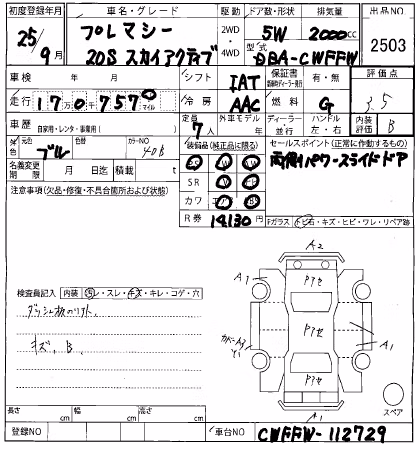 初度登録年月 車名・グレード 駆動 ドア数・形状 排気量 出品NO
25年9月 プレマシー 2WD・4WD 5W 2000cc 2503
20S スカイアクティブ 2WD・4WD 型式 DBA-CWFFW
車検 年 月 シフト IAT 保証書 有・無 評価点
走行 17万0千757 マイル 冷房 AAC 燃料 G 3.5
車歴 自家用・レンタ・事業用( ) 定員 7人 外車モデル 年 ディーラー・並行 ハンドル 左・右 内装評価 B
色 元色 ブル 色替 カラーNO 40B 装備品(純正品に限る) セールスポイント(正常に作動するもの)
両側パワースライドドア
名義変更期限 月 日迄 積載 t SR
注意事項(欠品・修復・不具合箇所および状態) カワ
R券 14130円 Fガラス トビ石・キズ・ヒビ・ワレ・リペア跡
A2
A1
検査員記入 内装 汚・スレ・キズ・キレ・コゲ・穴
キズ、B
Pアセ
Pアセ
Pアセ
A1
A1
スペア
長さ cm 幅 cm 高さ cm
登録NO 車台NO CWFFW-112729